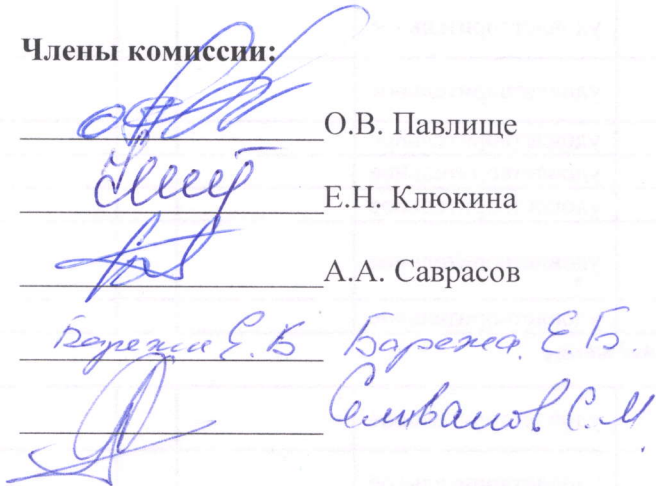 Члены комиссии:
О.В. Павлище
Е.Н. Клюкина
А.А. Саврасов
Барежа Е.Б Барежа Е.Б.
Селиванов С.М